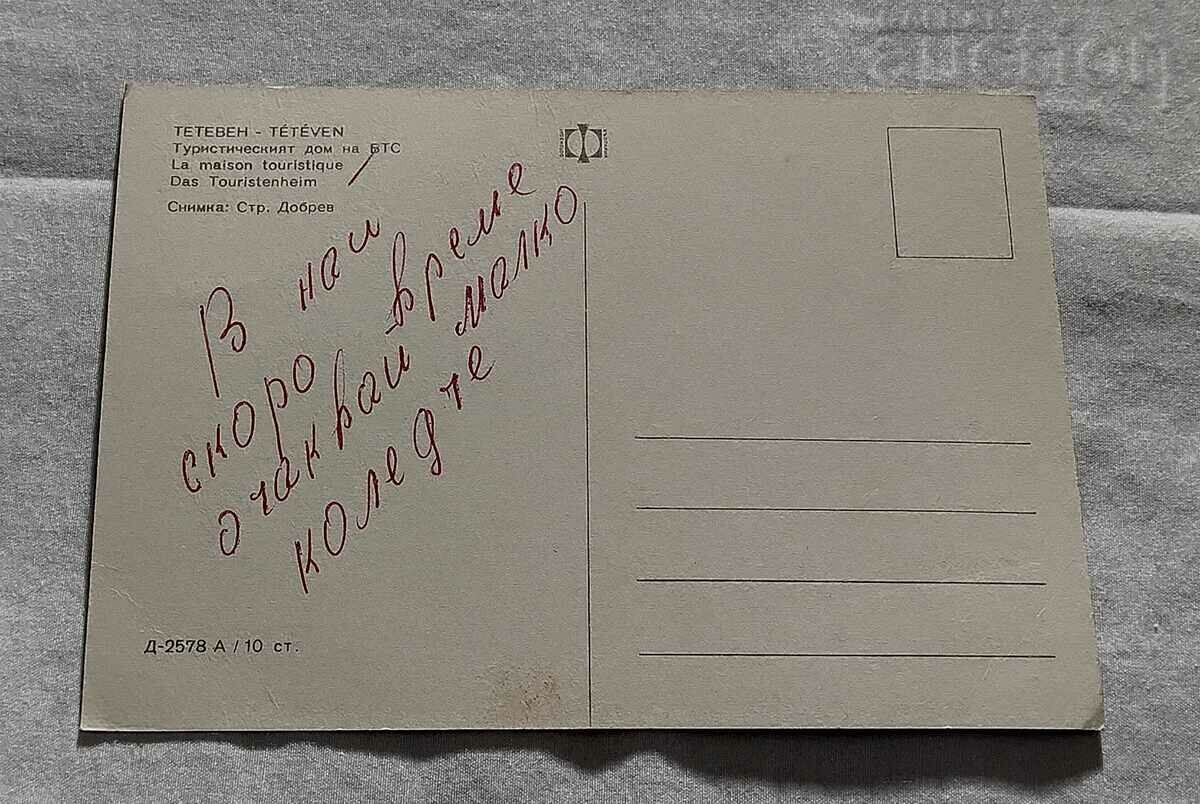 ТЕТЕВЕН - TÉTÉVEN
Туристическият дом на БТС
La maison touristique
Das Touristenheim
Снимка: Стр. Добрев
В наи
скоро време
очакваи малко
коледче
Д-2578 А / 10 ст.